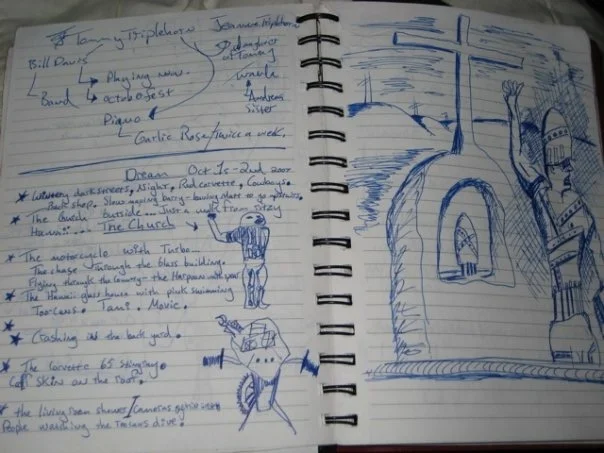 Tommy Triplehorn Jeanne Triplehorn
Bill Davis
daughter
of Tommy
Playing now.
Band
octoberfest
wanda
Andreas
sister
Pique
Garlic Rose/Twice a week.
Dream Oct 1st-2nd 2007
dark streets, Night, Red corvette, Cowboys.
Book shop. Slow moving
The Gulch outside... Just a walk from
Hawaii.... The Church
The motorcycle with Turbo...
The chase through the Glass building.
Flying through the the Harpoon
The Hawaii glass house with pink swimming
Toucans. Tami. Movie.
Crashing in the back yard.
The corvette 65 stingray
Calf skin on the roof.
the living room shower/Cameras
People watching the Toucans dive.